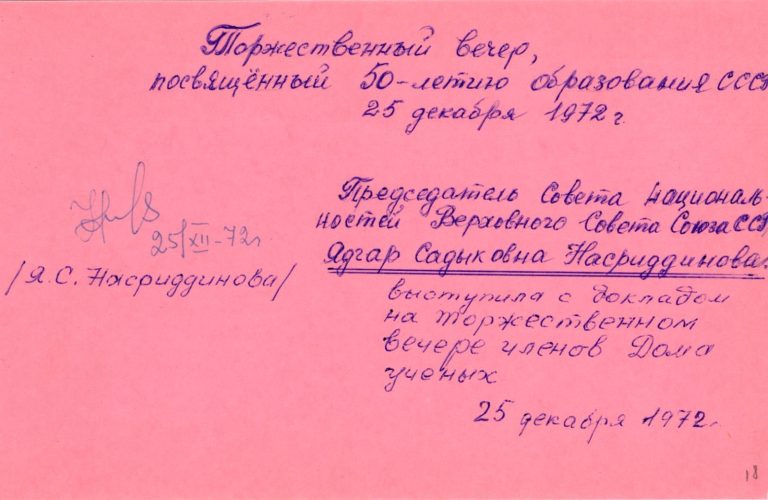 Торжественный вечер,
посвящённый 50-летию образования СССР
25 декабря 1972 г.
Председатель Совета Националь-
ностей Верховного Совета Союза ССР
Ядгар Садыковна Насриддинова.
25/XII-72г.
/Я.С. Насриддинова/
выступила с докладом
на торжественном
вечере членов Дома
ученых
25 декабря 1972г.
18